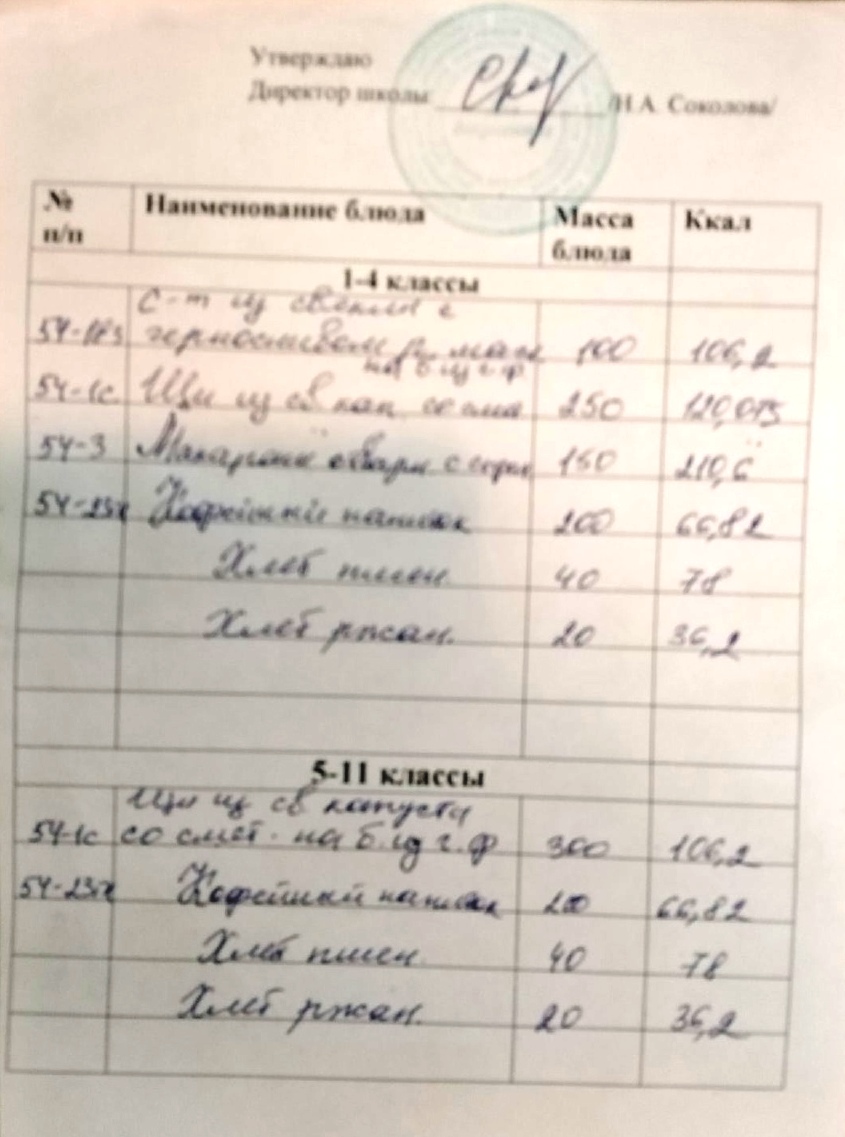 Утверждаю
Директор школы /Н.А. Соколова/
№ п/п Наименование блюда Масса блюда Ккал
1-4 классы
С-т из свеклы с
черносливом р. масл 100 106,2
на б. из г. ф
54-1с Щи из св кап со сме 250 120,015
54-3 Макароны отварн с сыром 150 210,6
54-23 Кофейный напиток 200 66,82
Хлеб пшен. 40 78
Хлеб ржан. 20 36,2
5-11 классы
Щи из св капусты
54-1с со смет. на б. из г. ф 300 106,2
54-23 Кофейный напиток 200 66,82
Хлеб пшен. 40 78
Хлеб ржан. 20 36,2